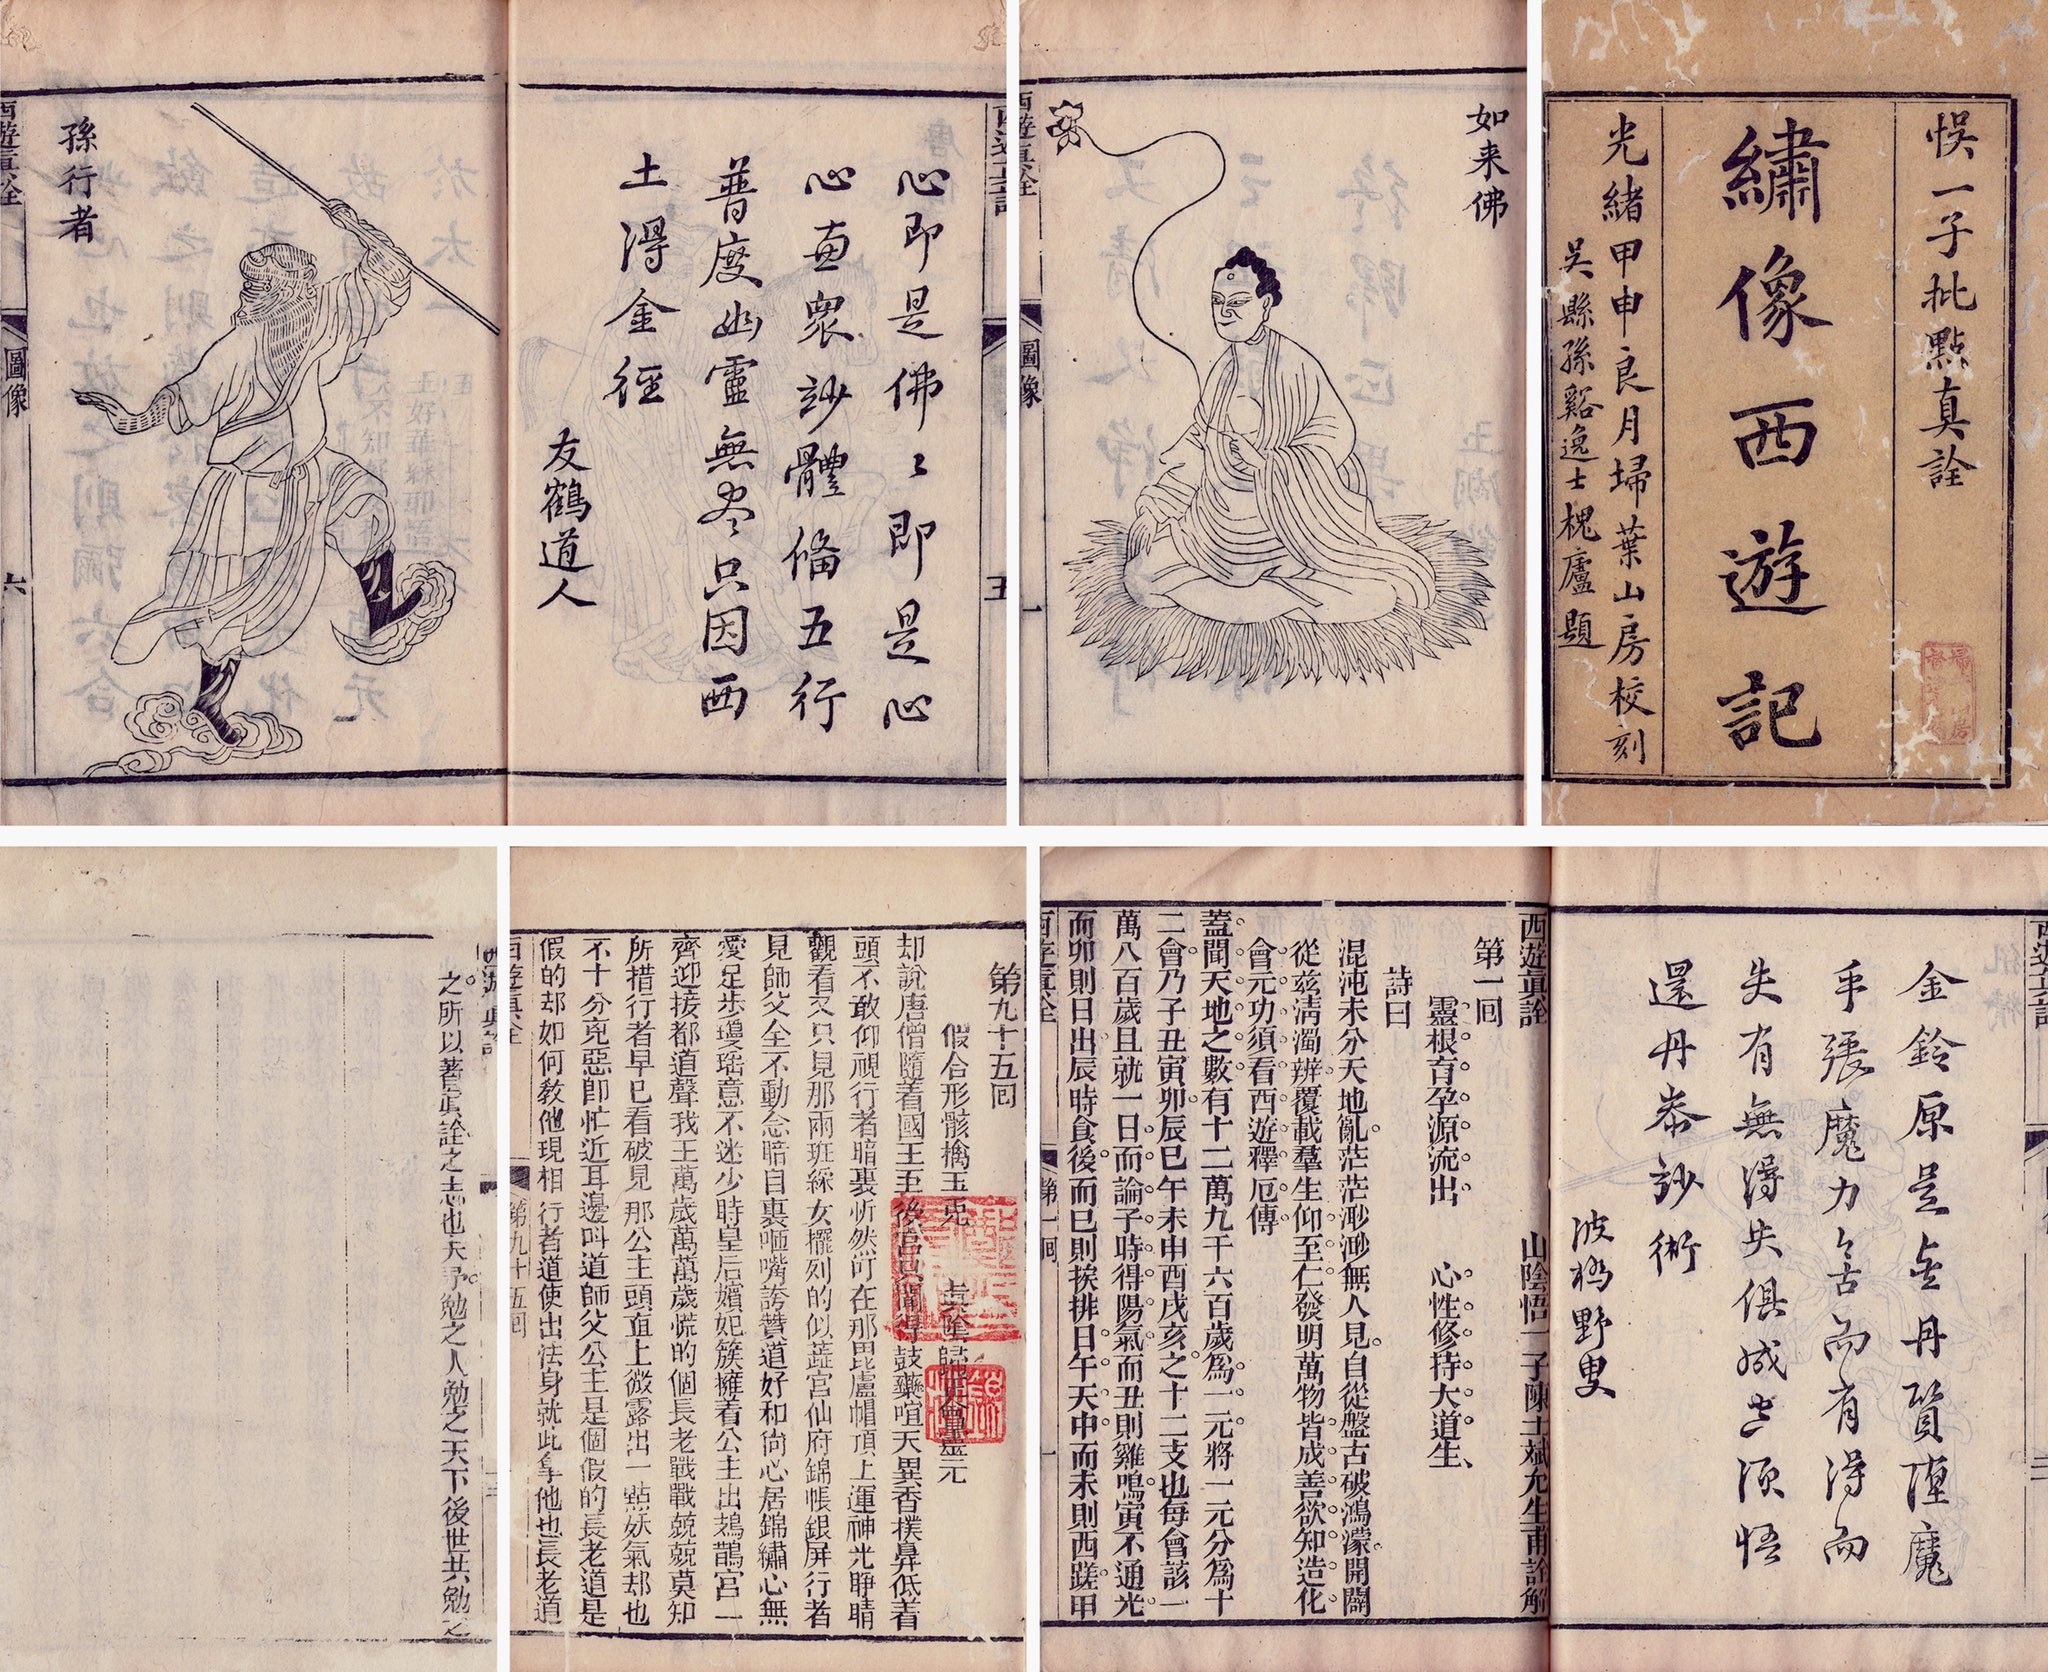 悞一子批點真詮
繡像西遊記
光緒甲申良月埽葉山房校刻
吳縣孫谿逸士槐廬題
如来佛
西遊真詮 圖像 一
西遊真詮 五
心即是佛〻即是心
心衆妙體偹五行
普度幽靈無尽只因西
土得金經
友鶴道人
孫行者
西遊真詮 圖像 六
金鈴原是丹質魔
手張魔力而有得而
失有無得失俱成空須悟
還丹叅妙術
波野叟
西遊真詮 山陰悟一子陳士斌允生甫詮解
第一回
靈根育孕源流出 心性修持大道生
詩曰
混沌未分天地亂茫茫渺渺無人見自從盤古破鴻濛開闢
從茲淸濁辨覆載羣生仰至仁發明萬物皆成善欲知造化
會元功須看西遊釋厄傳
蓋聞天地之數有十二萬九千六百歲爲一元將一元分爲十
二會乃子丑寅卯辰巳午未申酉戌亥之十二支也每會該一
萬八百歲且就一日而論子時得陽氣而丑則雞鳴寅不通光
而卯則日出辰時食後而巳則挨排日午天中而未則西蹉甲
西遊真詮 第一回 一
第九十五回
假合形骸擒玉兎 真陰歸正會靈元
却說唐僧隨着國王至後宮只聞得鼓樂喧天異香撲鼻低着
頭不敢仰視行者暗裏忻然叮在那毘盧帽頂上運神光睜睛
觀看又只見那兩班綵女擺列的似蕋宮仙府錦帳銀屏行者
見師父全不動念暗自裏咂嘴誇贊道好和尙心居錦繡心無
愛足步瓊瑤意不迷少時皇后嬪妃簇擁着公主出鳷鵲宮一
齊迎接都道聲我王萬歲萬萬歲慌的個長老戰戰兢兢莫知
所措行者早巳看破見那公主頭直上微露出一點妖氣却也
不十分兇惡卽忙近耳邊叫道師父公主是個假的長老道是
假的却如何敎他現相行者道使出法身就此拿他也長老道
西遊真詮 第九十五回
之所以著眞詮之志也夫予勉之人勉之天下後世共勉之